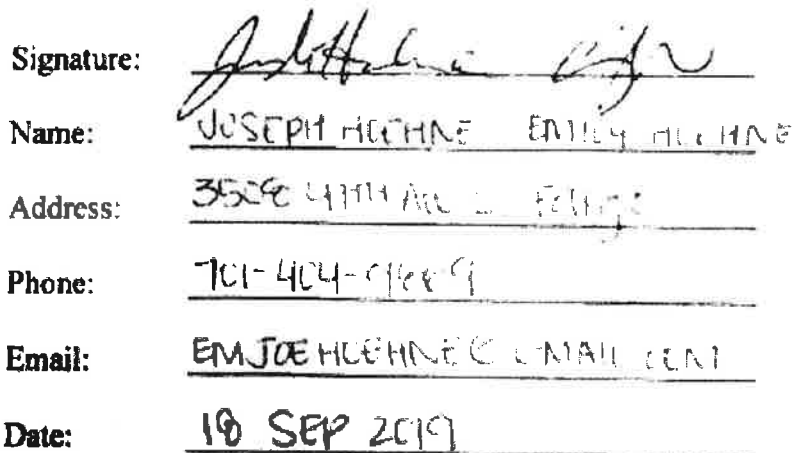 Signature:
Name: JOSEPH HOEHNE EMILY HOEHNE
Address:
Phone: 701-404-
Email: EMJOEHOEHNE@GMAIL.COM
Date: 18 SEP 2019